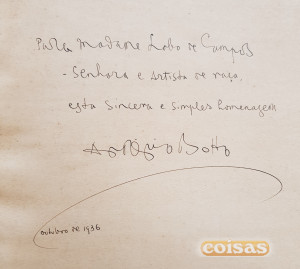 Para Madame Lobo de Campos
- Senhora e Artista de raça,
esta sincera e simples homenagem
António Botto
outubro de 1936
coisas